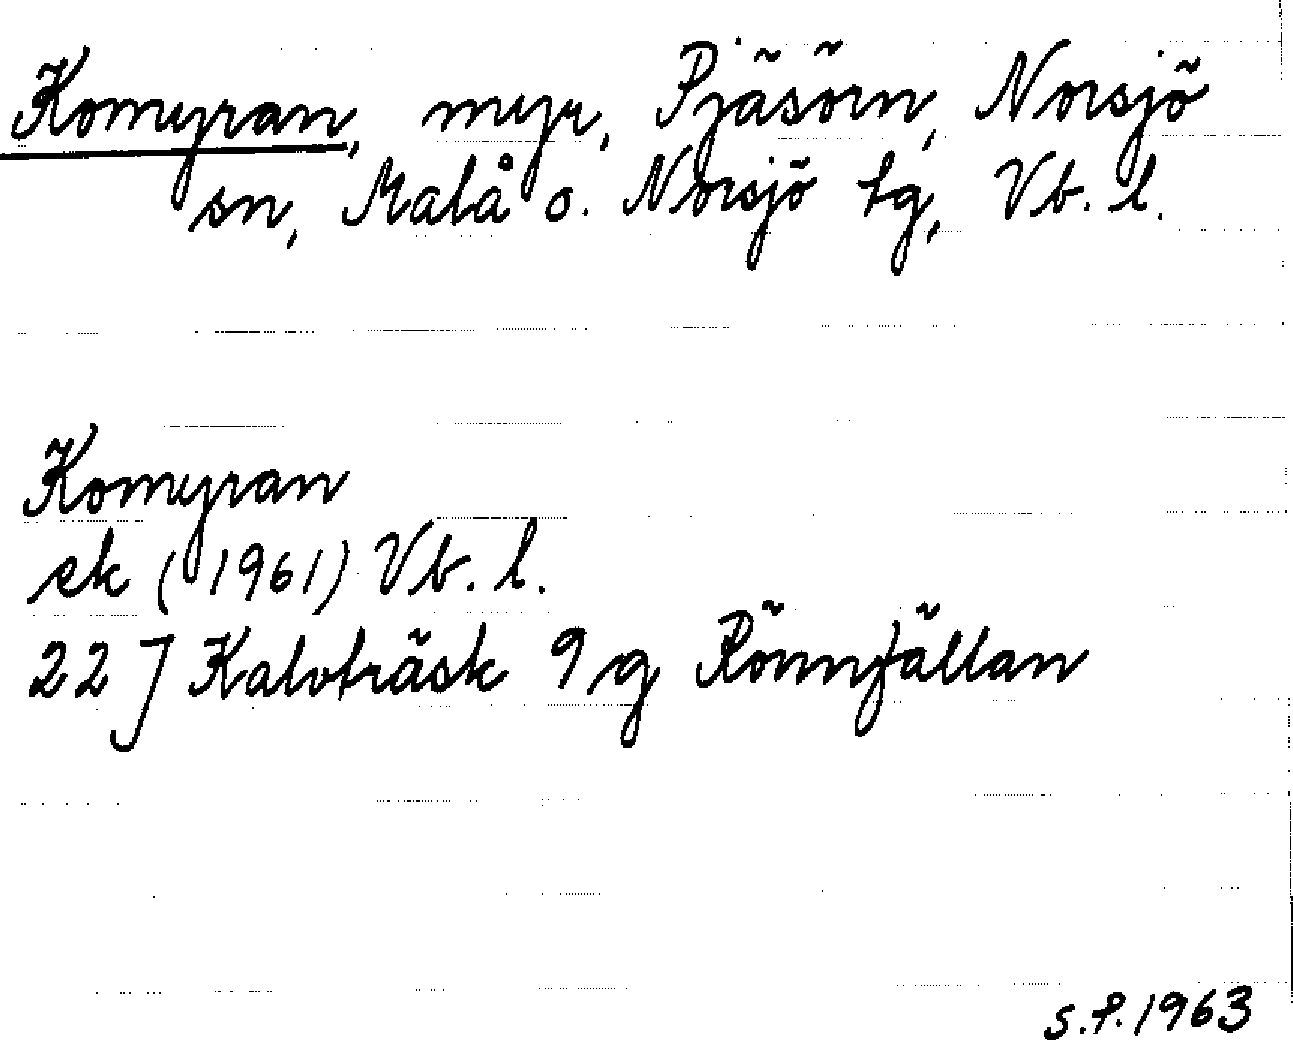 Komyran, myr, Pjäsörn, Norsjö
sn, Malå o. Norsjö tg, Vb. l.
Komyran
ek (1961) Vb. l.
22 J Kalvträsk 9 g Rönnfällan
s.f. 1963